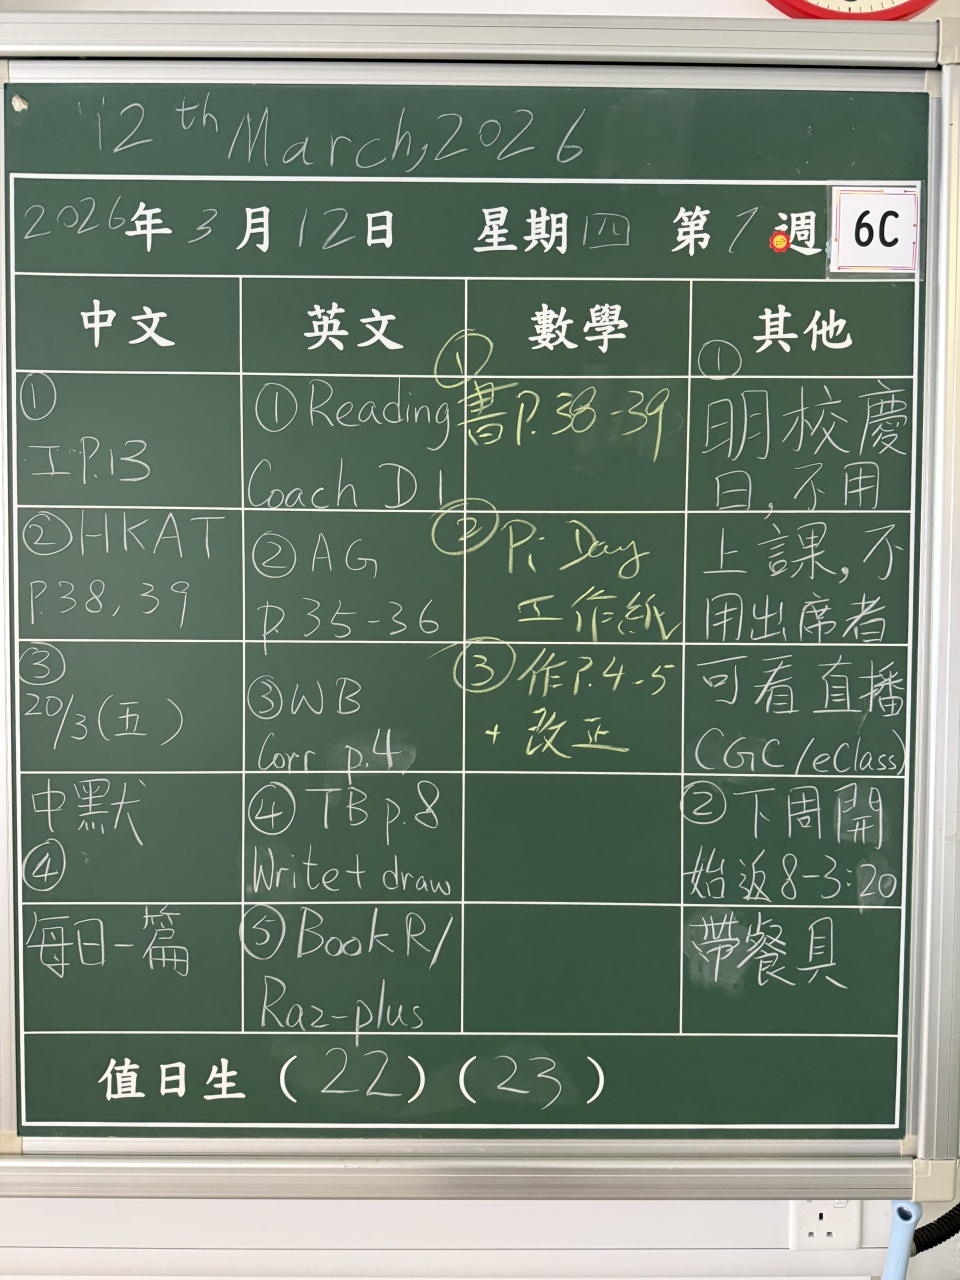 12th March, 2026
2026年3月12日 星期四 第7週 6C
中文 英文 數學 其他
①
工P.13
② HKAT
P.38, 39
③
20/3(五)
中默
④
每日一篇
① Reading
Coach D1
② AG
p.35-36
③ WB
Corr p.4
④ TB p.8
Write + draw
⑤ Book R/
Raz-plus
①
書P.38-39
②
Pi Day
工作紙
③ 作P.4-5
+ 改正
①
明校慶
日,不用
上課,不
用出席者
可看直播
(CGC/eClass)
② 下周開
始返8-3:20
帶餐具
值日生 (22) (23)